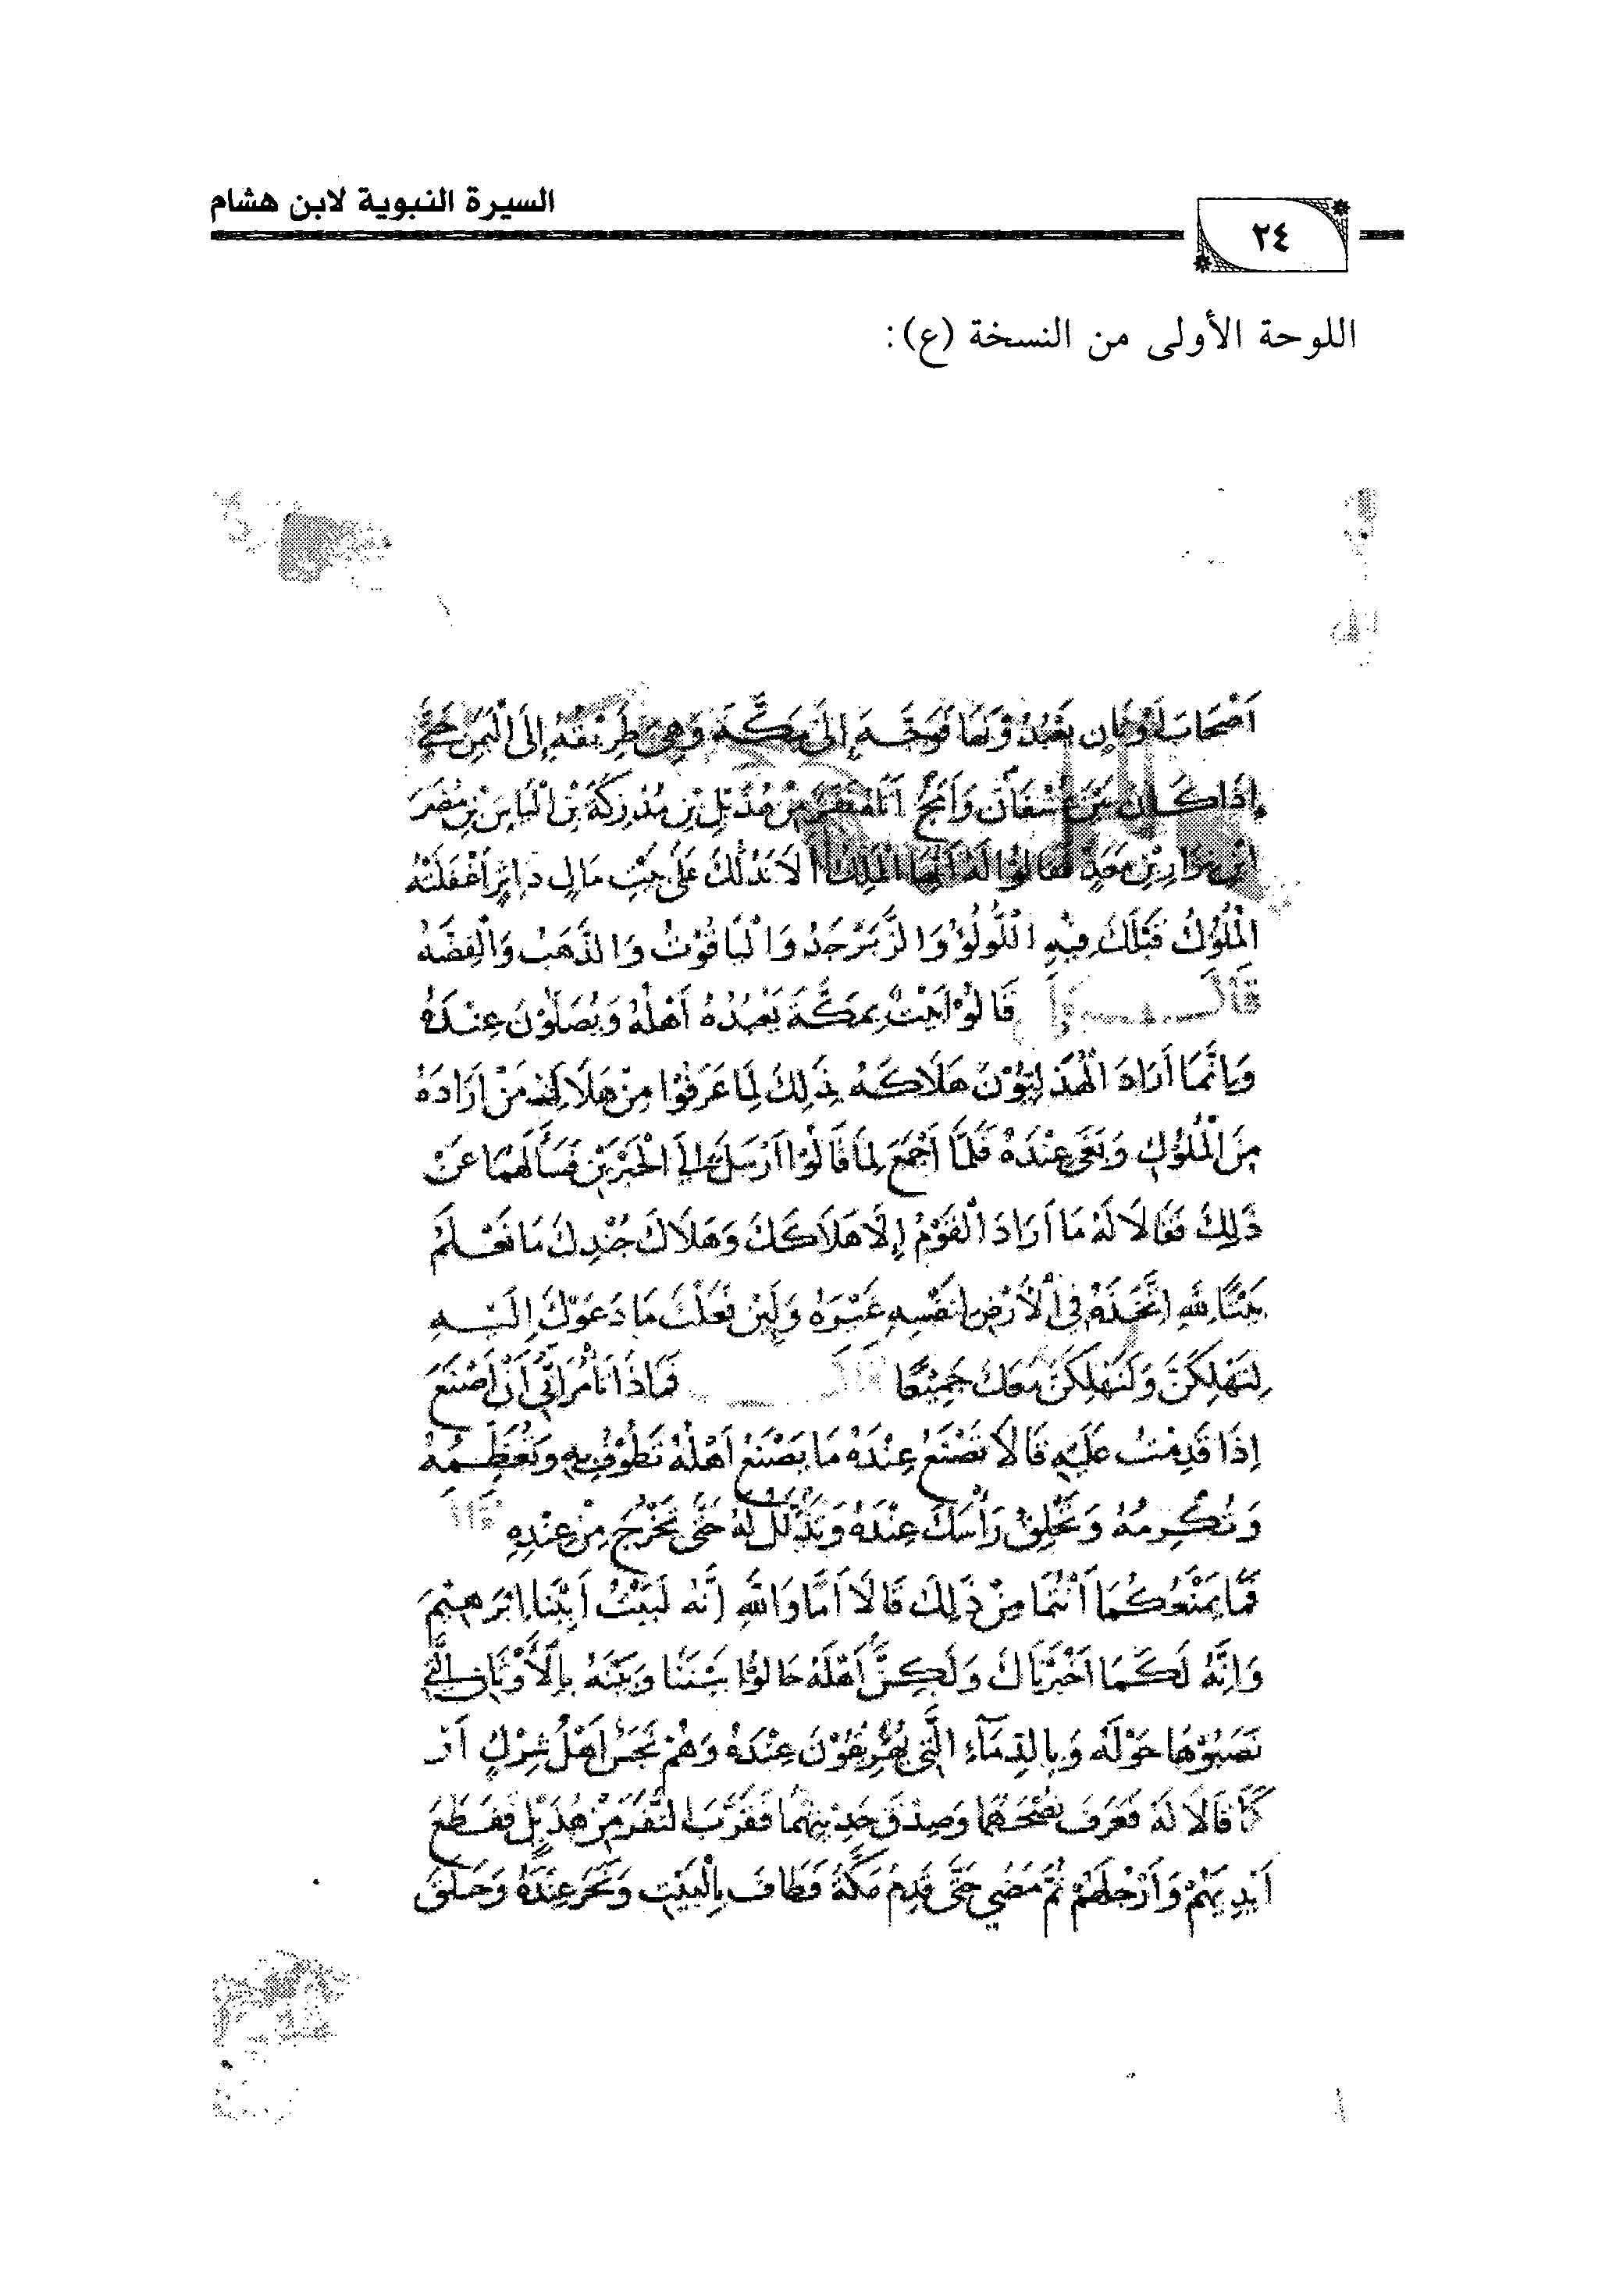 السيرة النبوية لابن هشام
٢٤
اللوحة الأولى من النسخة (ع):
أَصْحَابَ أَوْثَانٍ يَعْبُدُوْنَهَا فَوَجَّهَ إِلَى مَكَّةَ وَهِيَ طَرِيْقُهُ إِلَى الْيَمَنِ حَتَّى
إِذَا كَانَ بَيْنَ عُسْفَانَ وَأَمَجٍ أَتَاهُ نَفَرٌ مِنْ هُذَيْلِ بْنِ مُدْرِكَةَ بْنِ الْيَاسِ بْنِ مُضَرَ
ابْنِ نِزَارِ بْنِ مَعَدٍّ فَقَالُوا لَهُ أَيُّهَا الْمَلِكُ أَلَا نَدُلُّكَ عَلَى بَيْتِ مَالٍ دَاثِرٍ أَغْفَلَتْهُ
الْمُلُوْكُ قَبْلَكَ فِيْهِ اللُّؤْلُؤُ وَالزَّبَرْجَدُ وَالْيَاقُوْتُ وَالذَّهَبُ وَالْفِضَّةُ
قَالَ قَالُوْا بَيْتٌ بِمَكَّةَ يَعْبُدُهُ أَهْلُهُ وَيُصَلُّوْنَ عِنْدَهُ
وَإِنَّمَا أَرَادَ الْهُذَلِيُّوْنَ هَلَاكَهُ بِذَلِكَ لِمَا عَرَفُوْا مِنْ هَلَاكِ مَنْ أَرَادَهُ
مِنَ الْمُلُوْكِ وَبَغَى عِنْدَهُ فَلَمَّا أَجْمَعَ لِمَا قَالُوْا أَرْسَلَ إِلَى الْحَبْرَيْنِ فَسَأَلَهُمَا عَنْ
ذَلِكَ فَقَالَا لَهُ مَا أَرَادَ الْقَوْمُ إِلَّا هَلَاكَكَ وَهَلَاكَ جُنْدِكَ مَا نَعْلَمُ
بَيْتًا لِلَّهِ اتَّخَذَهُ فِي الْأَرْضِ لِنَفْسِهِ غَيْرَهُ وَلَئِنْ فَعَلْتَ مَا دَعَوْكَ إِلَيْهِ
لَتَهْلِكَنَّ وَلَيَهْلِكَنَّ مَنْ مَعَكَ جَمِيْعًا قَالَ فَمَاذَا تَأْمُرَانِّي أَنْ أَصْنَعَ
إِذَا قَدِمْتُ عَلَيْهِ قَالَا تَصْنَعُ عِنْدَهُ مَا يَصْنَعُ أَهْلُهُ تَطُوْفُ بِهِ وَتُعَظِّمُهُ
وَتُكْرِمُهُ وَتَحْلِقُ رَأْسَكَ عِنْدَهُ وَتَذَلَّلُ لَهُ حَتَّى تَخْرُجَ مِنْ عِنْدِهِ قَالَ
فَمَا يَمْنَعُكُمَا أَنْتُمَا مِنْ ذَلِكَ قَالَا أَمَا وَاللَّهِ إِنَّهُ لَبَيْتُ أَبِيْنَا إِبْرَهِيْمَ
وَإِنَّهُ لَكَمَا أَخْبَرْنَاكَ وَلَكِنَّ أَهْلَهُ حَالُوْا بَيْنَنَا وَبَيْنَهُ بِالْأَوْثَانِ الَّتِي
نَصَبُوْهَا حَوْلَهُ وَبِالدِّمَآءِ الَّتِي يُهَرِيْقُوْنَ عِنْدَهُ وَهُمْ نَجَسٌ أَهْلُ شِرْكٍ أَوْ
كَمَا قَالَا لَهُ فَعَرَفَ نُصْحَهُمَا وَصِدْقَ حَدِيْثِهِمَا فَقَرَّبَ النَّفَرَ مِنْ هُذَيْلٍ فَقَطَعَ
أَيْدِيَهُمْ وَأَرْجُلَهُمْ ثُمَّ مَضَى حَتَّى قَدِمَ مَكَّةَ فَطَافَ بِالْبَيْتِ وَنَحَرَ عِنْدَهُ وَحَلَقَ